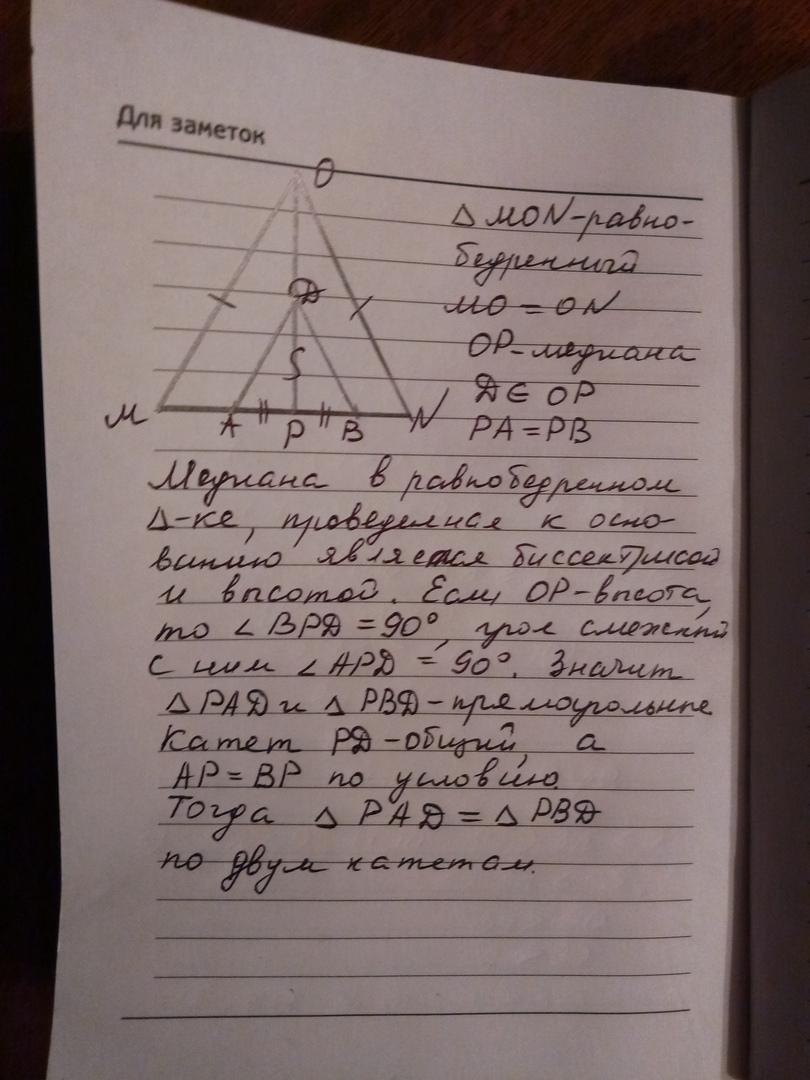 Для заметок
O
D
S
M
A
P
B
N
Δ MON-равно-
бедренный
MO = ON
OP-медиана
D ∈ OP
PA = PB
Медиана в равнобедренном
Δ-ке, проведенная к осно-
ванию является биссектрисой
и высотой. Если OP-высота,
то ∠ BPD = 90°, угол смежный
с ним ∠ APD = 90°. Значит
Δ PAD и Δ PBD-прямоугольные
Катет PD-общий, а
AP = BP по условию.
Тогда Δ PAD = Δ PBD
по двум катетам.